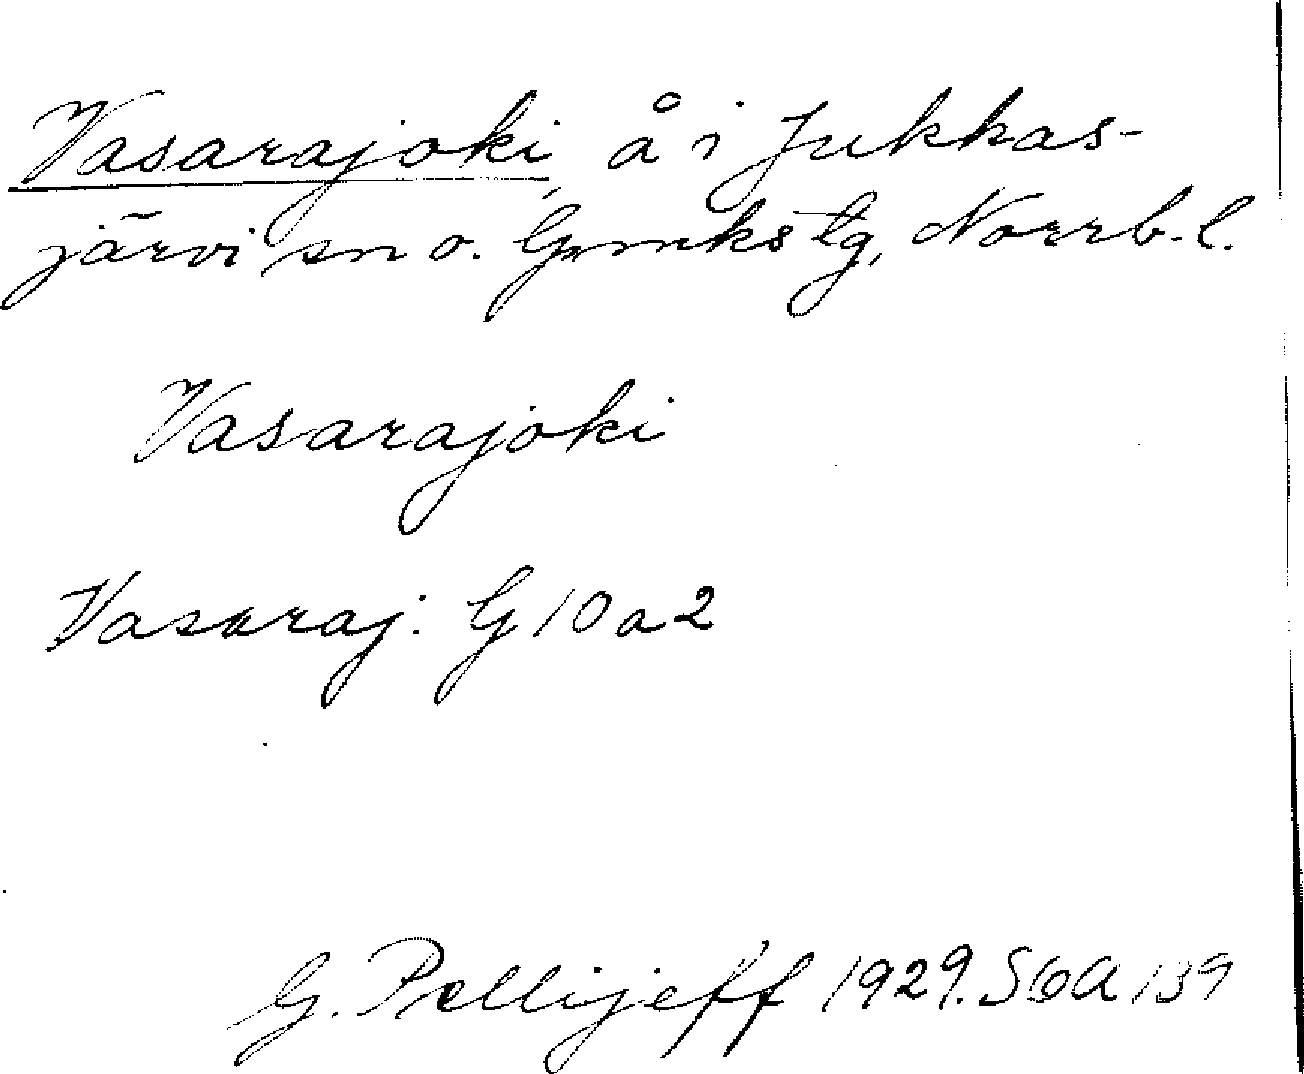 Vasarajoki, å i Jukkas-
järvi sn o. Gmks tg, Norrb. l.
Vasarajoki
Vasaraj. G 10 a 2
G. Pellijeff 1929. S6A 139